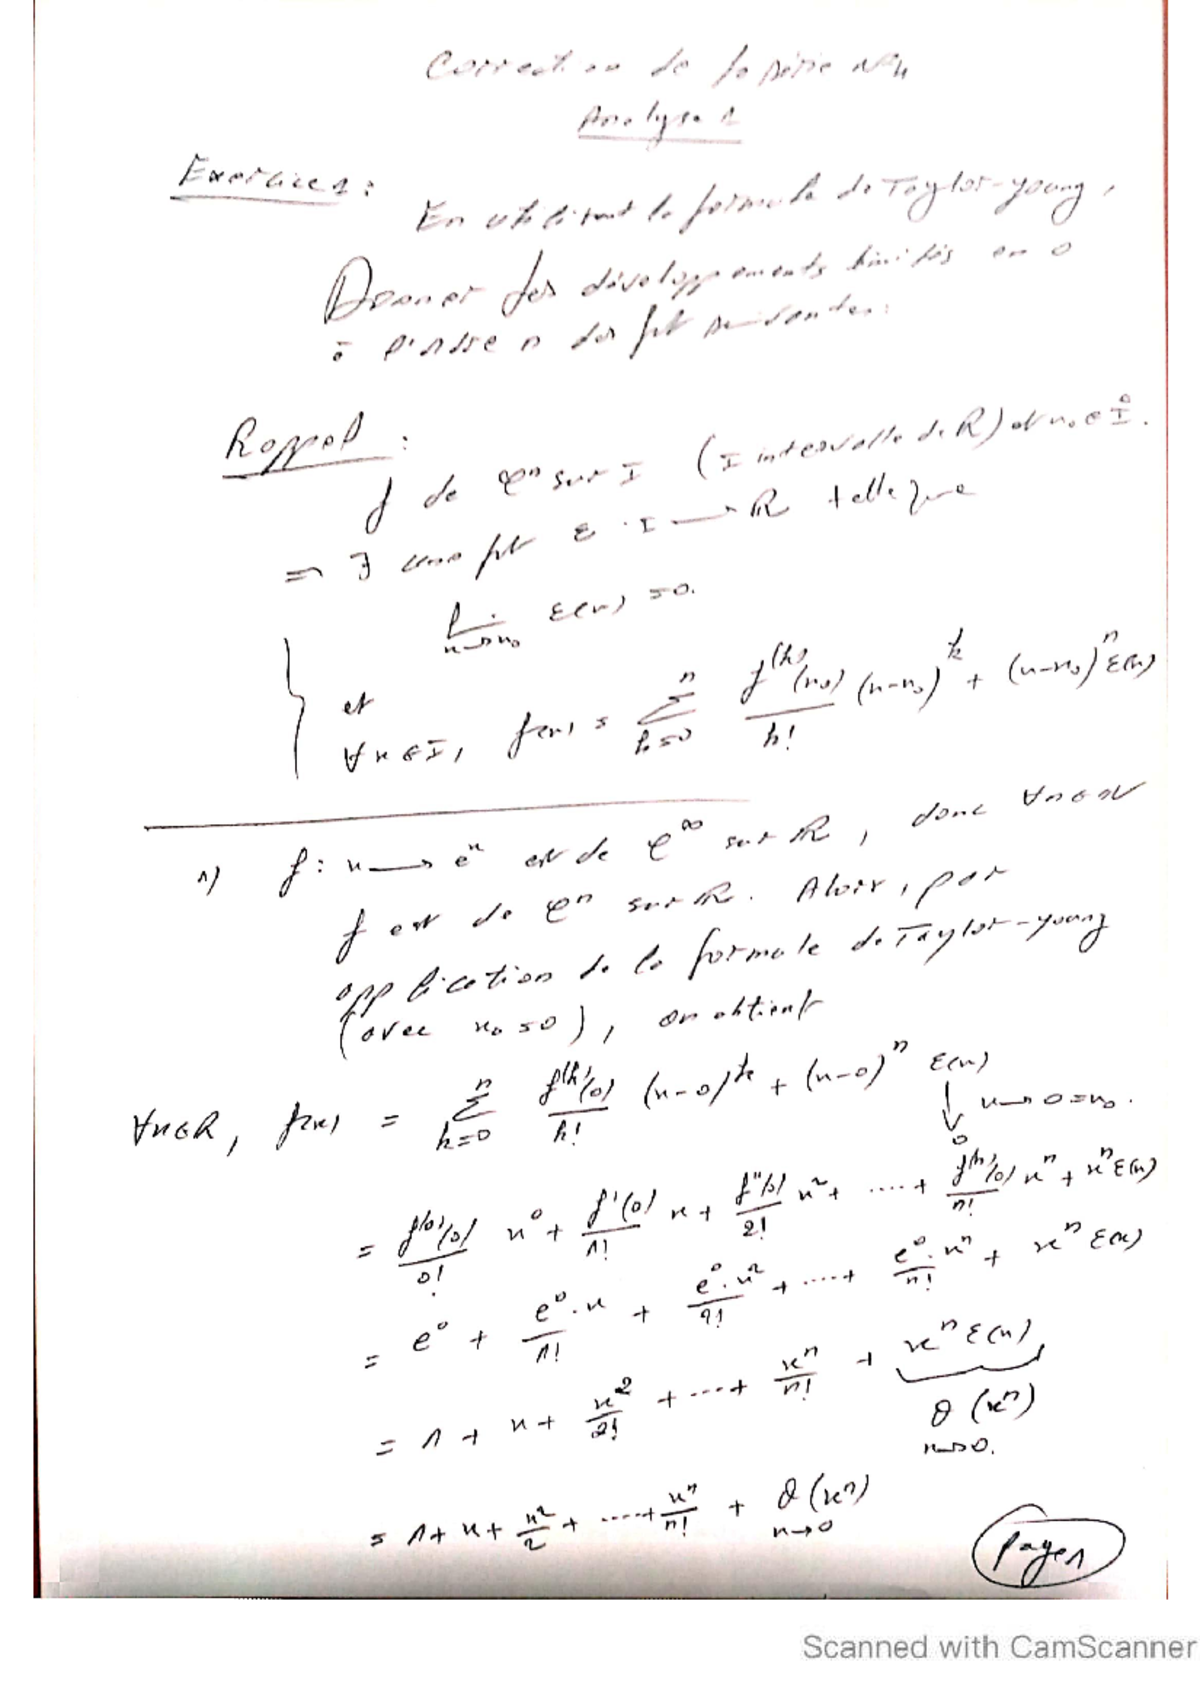 Correction de la série N°4
Analyse 1
Exercice 1 :
En utilisant la formule de Taylor-young,
Donner les développements limités en 0
à l'ordre n des fct suivantes :
Rappel :
f de 𝒞ⁿ sur I (I intervalle de ℝ) et x₀ ∈ I̊.
⇒ ∃ une fct ε : I → ℝ telle que
lim_{x→x₀} ε(x) = 0.
et
∀x ∈ I, f(x) = Σ_{k=0}^{n} f^{(k)}(x₀)/k! (x-x₀)^k + (x-x₀)^n ε(x)
1) f : x → e^x est de 𝒞^∞ sur ℝ, donc ∀n ∈ ℕ
f est de 𝒞ⁿ sur ℝ. Alors, par
application de la formule de Taylor-young
(avec x₀ = 0), on obtient
∀x∈ℝ, f(x) = Σ_{k=0}^{n} f^{(k)}(0)/k! (x-0)^k + (x-0)^n ε(x)
↓ x→0=x₀.
0
= f^{(0)}(0)/0! x^0 + f'(0)/1! x + f''(0)/2! x^2 + .... + f^{(n)}(0)/n! x^n + x^n ε(x)
= e^0 + e^0.x/1! + e^0.x^2/2! + ..... + e^0.x^n/n! + x^n ε(x)
= 1 + x + x^2/2! + ..... + x^n/n! + x^n ε(x)
o(x^n)
x→0.
= 1 + x + x^2/2 + ..... + x^n/n! + o(x^n)
x→0
page 1
Scanned with CamScanner